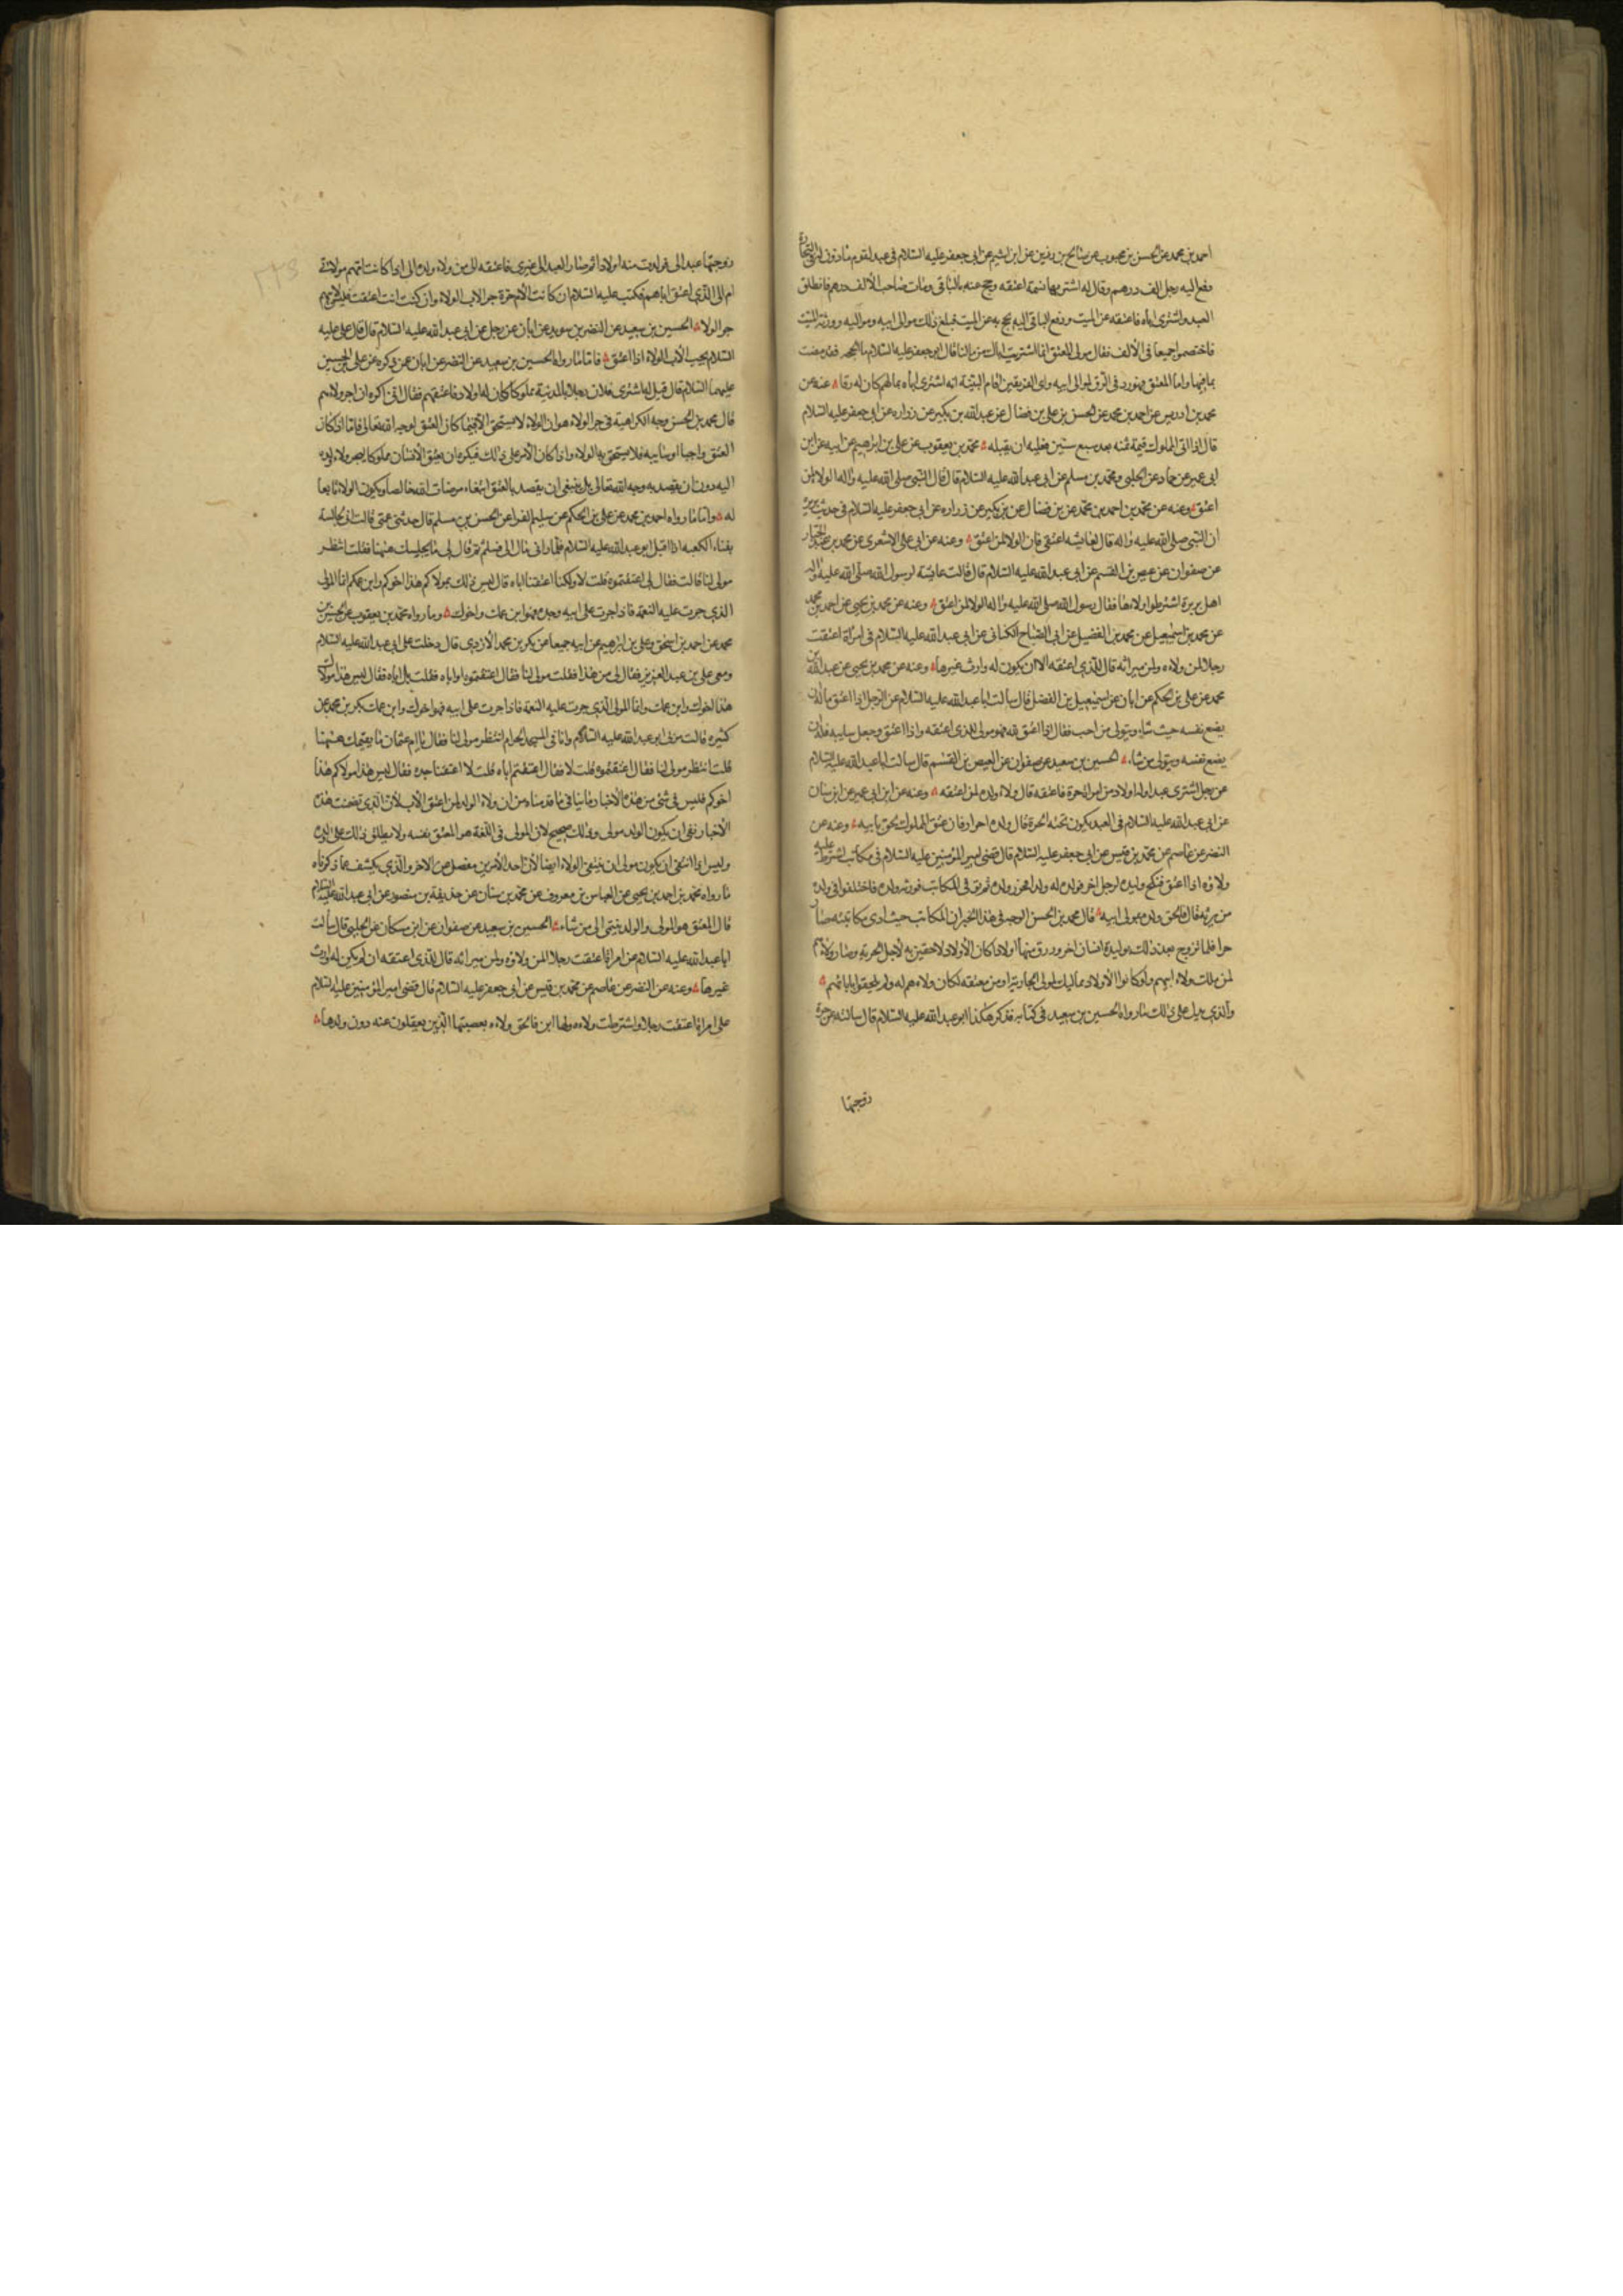 احمد بن محمد عن الحسن بن محبوب عن صالح بن رزين عن ابن اشيم عن ابى جعفر عليه السّلام فى عبد لقوم مأذون له فى التجارة
دفع اليه رجل الف درهم وقال له اشتر بها نسمة اعتقه وحج عنه بالباقى ومات صاحب الالف درهم فانطلق
العبد واشترى اباه فاعتقه عن الميت ودفع الباقى اليه يحج به عن الميت فبلغ ذلك موالى ابيه ومواليه وورثة الميت
فاختصموا جميعا فى الالف فقال مولى المعتق انما اشتريت اباك من مالنا قال ابو جعفر عليه السّلام اما الحجه فقد مضت
بما فيها واما المعتق فهو رد فى الرق لموالى ابيه واى الفريقين اقام البيّنة انه اشترى اباه بمالهم كان له رقا وعنه عن
محمد بن ادريس عن احمد بن محمد عن الحسن بن على بن فضال عن عبد الله بن بكير عن زراره عن ابى جعفر عليه السّلام
قال اذا اتى المملوك قيمة ثمنه بعد سبع سنين فعليه ان يقبله محمّد بن يعقوب عن على بن ابراهيم عن ابيه عن ابن
ابى عمير عن حماد عن الحلبى ومحمّد بن مسلم عن ابى عبد الله عليه السّلام قال قال النّبى صلى الله عليه واله الولاء لمن
اعتق وعنه عن محمّد بن احمد بن محمّد عن بن فضال عن بن بكير عن زراره عن ابى جعفر عليه السّلام فى حديث بريرة
ان النّبى صلى الله عليه واله قال لعايشه اعتقى فان الولاء لمن اعتق وعنه عن ابى على الاشعرى عن محمد بن عبد الجبار
عن صفوان عن عيص بن القسم عن ابى عبد الله عليه السّلام قال قالت عايشة لرسول الله صلى الله عليه واله ان
اهل بريرة اشترطوا ولاءها فقال رسول الله صلى الله عليه واله الولاء لمن اعتق وعنه عن محمد بن يحيى عن احمد بن محمد
عن محمد بن اسمعيل عن محمد بن الفضيل عن ابى الصّباح الكنانى عن ابى عبد الله عليه السّلام فى امراة اعتقت
رجلا لمن ولاءه ولمن ميراثه قال للّذى اعتقه الا ان يكون له وارث غيرها وعنه عن محمد بن يحيى عن عبد الله بن
محمد عن على بن الحكم عن ابان عن اسمعيل بن الفضل قال سالت ابا عبد الله عليه السّلام عن الرّجل اذا اعتق ما له ان
يضع نفسه حيث شاء ويتولى من احب فقال اذا اعتق لله فهو مولى للذى اعتقه واذا اعتق وجعل سايبه فله ان
يضع نفسه ويتولى من شاء الحسين بن سعيد عن صفوان عن العيص بن القسم قال سالت ابا عبد الله عليه السّلام
عن رجل اشترى عبدا وله اولاد من امراة حرة فاعتقه قال ولاء ولده لمن اعتقه وعنه عن ابن ابى عمير عن ابن سنان
عن ابى عبد الله عليه السّلام فى العبد يكون تحته الحرة قال ولده احرار فان عتق المملوك لحق بابيه وعنه عن
النضر عن عاصم عن محمّد بن قيس عن ابى جعفر عليه السّلام قال قضى امير المؤمنين عليه السّلام فى مكاتب اشترط عليه
ولاؤه اذا اعتق فنكح وليده لرجل اخر فولدت له ولدا فحرر ولده ثم توفى المكاتب فورثه ولده فاختلفوا فى ولده
من يرثه فقال فالحق ولده بموالى ابيه قال محمد بن الحسن الوجه فى هذا الخبر ان المكاتب حيث ادى مكاتبته صار
حرا فلما تزوج بعد ذلك بوليدة انسان اخر ورزق منها اولادا كان الاولاد لاحقين به لاجل الحرية وصار ولاؤهم
لمن ملك ولاء ابيهم ولو كانوا الاولاد مماليك لمولى الجارية او من معتقه لكان ولاءهم له ولم يلحقوا بابائهم
والذى يدل على ذلك ما رواه الحسين بن سعيد فى كتابه فذكر هكذا ابو عبد الله عليه السّلام قال سالته عن حرة
زوجتها
زوجتها عبدا لى فولدت منه اولادا ثم صار العبد الى غيرى فاعتقه الى من ولاء ولده الى اذا كانت امهم مولاتى
ام الى الّذى اعتق اباهم فكتب عليه السّلام ان كانت الام حرة جر الاب الولاء وان كنت انت اعتقت فليس لابيهم
جر الولاء الحسين بن سعيد عن النضر بن سويد عن ابان عن رجل عن ابى عبد الله عليه السّلام قال قال على عليه
السّلام يجر الاب الولاء اذا اعتق فاما ما رواه الحسين بن سعيد عن النضر عن ابان عن ذكره عن على بن الحسين
عليهما السّلام قال قيل له اشترى فلان رجلا بالمدينة مملوكا كان له اولاد فاعتقهم فقال انى اكره ان اجر ولاءهم
قال محمد بن الحسن وجه الكراهية فى جر الولاء هو ان الولاء لا يستحق الا فيما كان العتق لوجه الله تعالى فاما اذا كان
العتق واجبا او سايبه فلا يستحق به الولاء واذا كان الامر على ذلك فيكره ان يعتق الانسان مملوكا ليجر ولاء ولده
اليه دون ان يقصد به وجه الله تعالى بل ينبغى ان يقصد بالعتق ابتغاء مرضات الله خالصا ويكون الولاء تابعا
له واما ما رواه احمد بن محمد عن على بن الحكم عن سليم الفرا عن الحسن بن مسلم قال حدثتنى عمتى قالت انى لجالسة
بفناء الكعبه اذا اقبل ابو عبد الله عليه السّلام فلما رانى مال الى فسلم ثم قال لى ما يجلسك هيهنا فقلت انتظر
مولى لنا قالت فقال لى اعتقتموه قلت لا ولكنا اعتقنا اباه قال ليس ذلك بمولاكم هذا اخوكم وابن عمكم انما المولى
الذى جرت عليه النعمه فاذا جرت على ابيه وجده فهو ابن عمك واخوك وما رواه محمّد بن يعقوب عن الحسين بن
محمد عن احمد بن اسحق وعلى بن ابراهيم عن ابيه جميعا عن بكر بن محمد الازدى قال دخلت على ابى عبد الله عليه السّلام
ومعى على بن عبد العزيز فقال لى من هذا فقلت مولى لنا فقال اعتقتموه او اباه فقلت بل اباه فقال ليس هذا مولاك
هذا اخوك وابن عمك وانما المولى الّذى جرت عليه النعمة فاذا جرت على ابيه فهو اخوك وابن عمك بكر بن محمد عن
كثيره قالت مر بى ابو عبد الله عليه السّلام وانا فى المسجد الحرام انتظر مولى لنا فقال يا ام عثمان ما يقيمك هيهنا
قلت انتظر مولى لنا فقال اعتقتموه قلت لا فقال اعتقتم اباه قلت لا اعتقنا جده فقال ليس هذا مولاكم هذا
اخوكم فليس فى شئ من هذه الاخبار ما ينافى ما قدمناه من ان ولاء الولد لمن اعتق الاب لان الّذى تضمنت هذه
الاخبار نفى ان يكون الولد مولى وذلك صحيح لان المولى فى اللغة هو المعتق نفسه ولا يطلق ذلك على ولده
وليس اذا انتفى ان يكون مولى ان ينتفى الولاء ايضا لان احد الامرين منفصل من الاخر والّذى يكشف عما ذكرناه
ما رواه محمّد بن احمد بن يحيى عن العباس بن معروف عن محمّد بن سنان عن حذيفة بن منصور عن ابى عبد الله عليه السّلام
قال المعتق هو المولى والولد ينتمى الى من شاء الحسين بن سعيد عن صفوان عن ابن مسكان عن الحلبى قال سألت
ابا عبد الله عليه السّلام عن امراة اعتقت رجلا لمن ولاؤه ولمن ميراثه قال للّذى اعتقه ان لم يكن له وارث
غيرها وعنه عن النضر عن عاصم عن محمّد بن قيس عن ابى جعفر عليه السّلام قال قضى امير المؤمنين عليه السّلام
على امراة اعتقت رجلا واشترطت ولاءه ولها ابن فالحق ولاءه بعصبتها الّذين يعقلون عنه دون ولدها